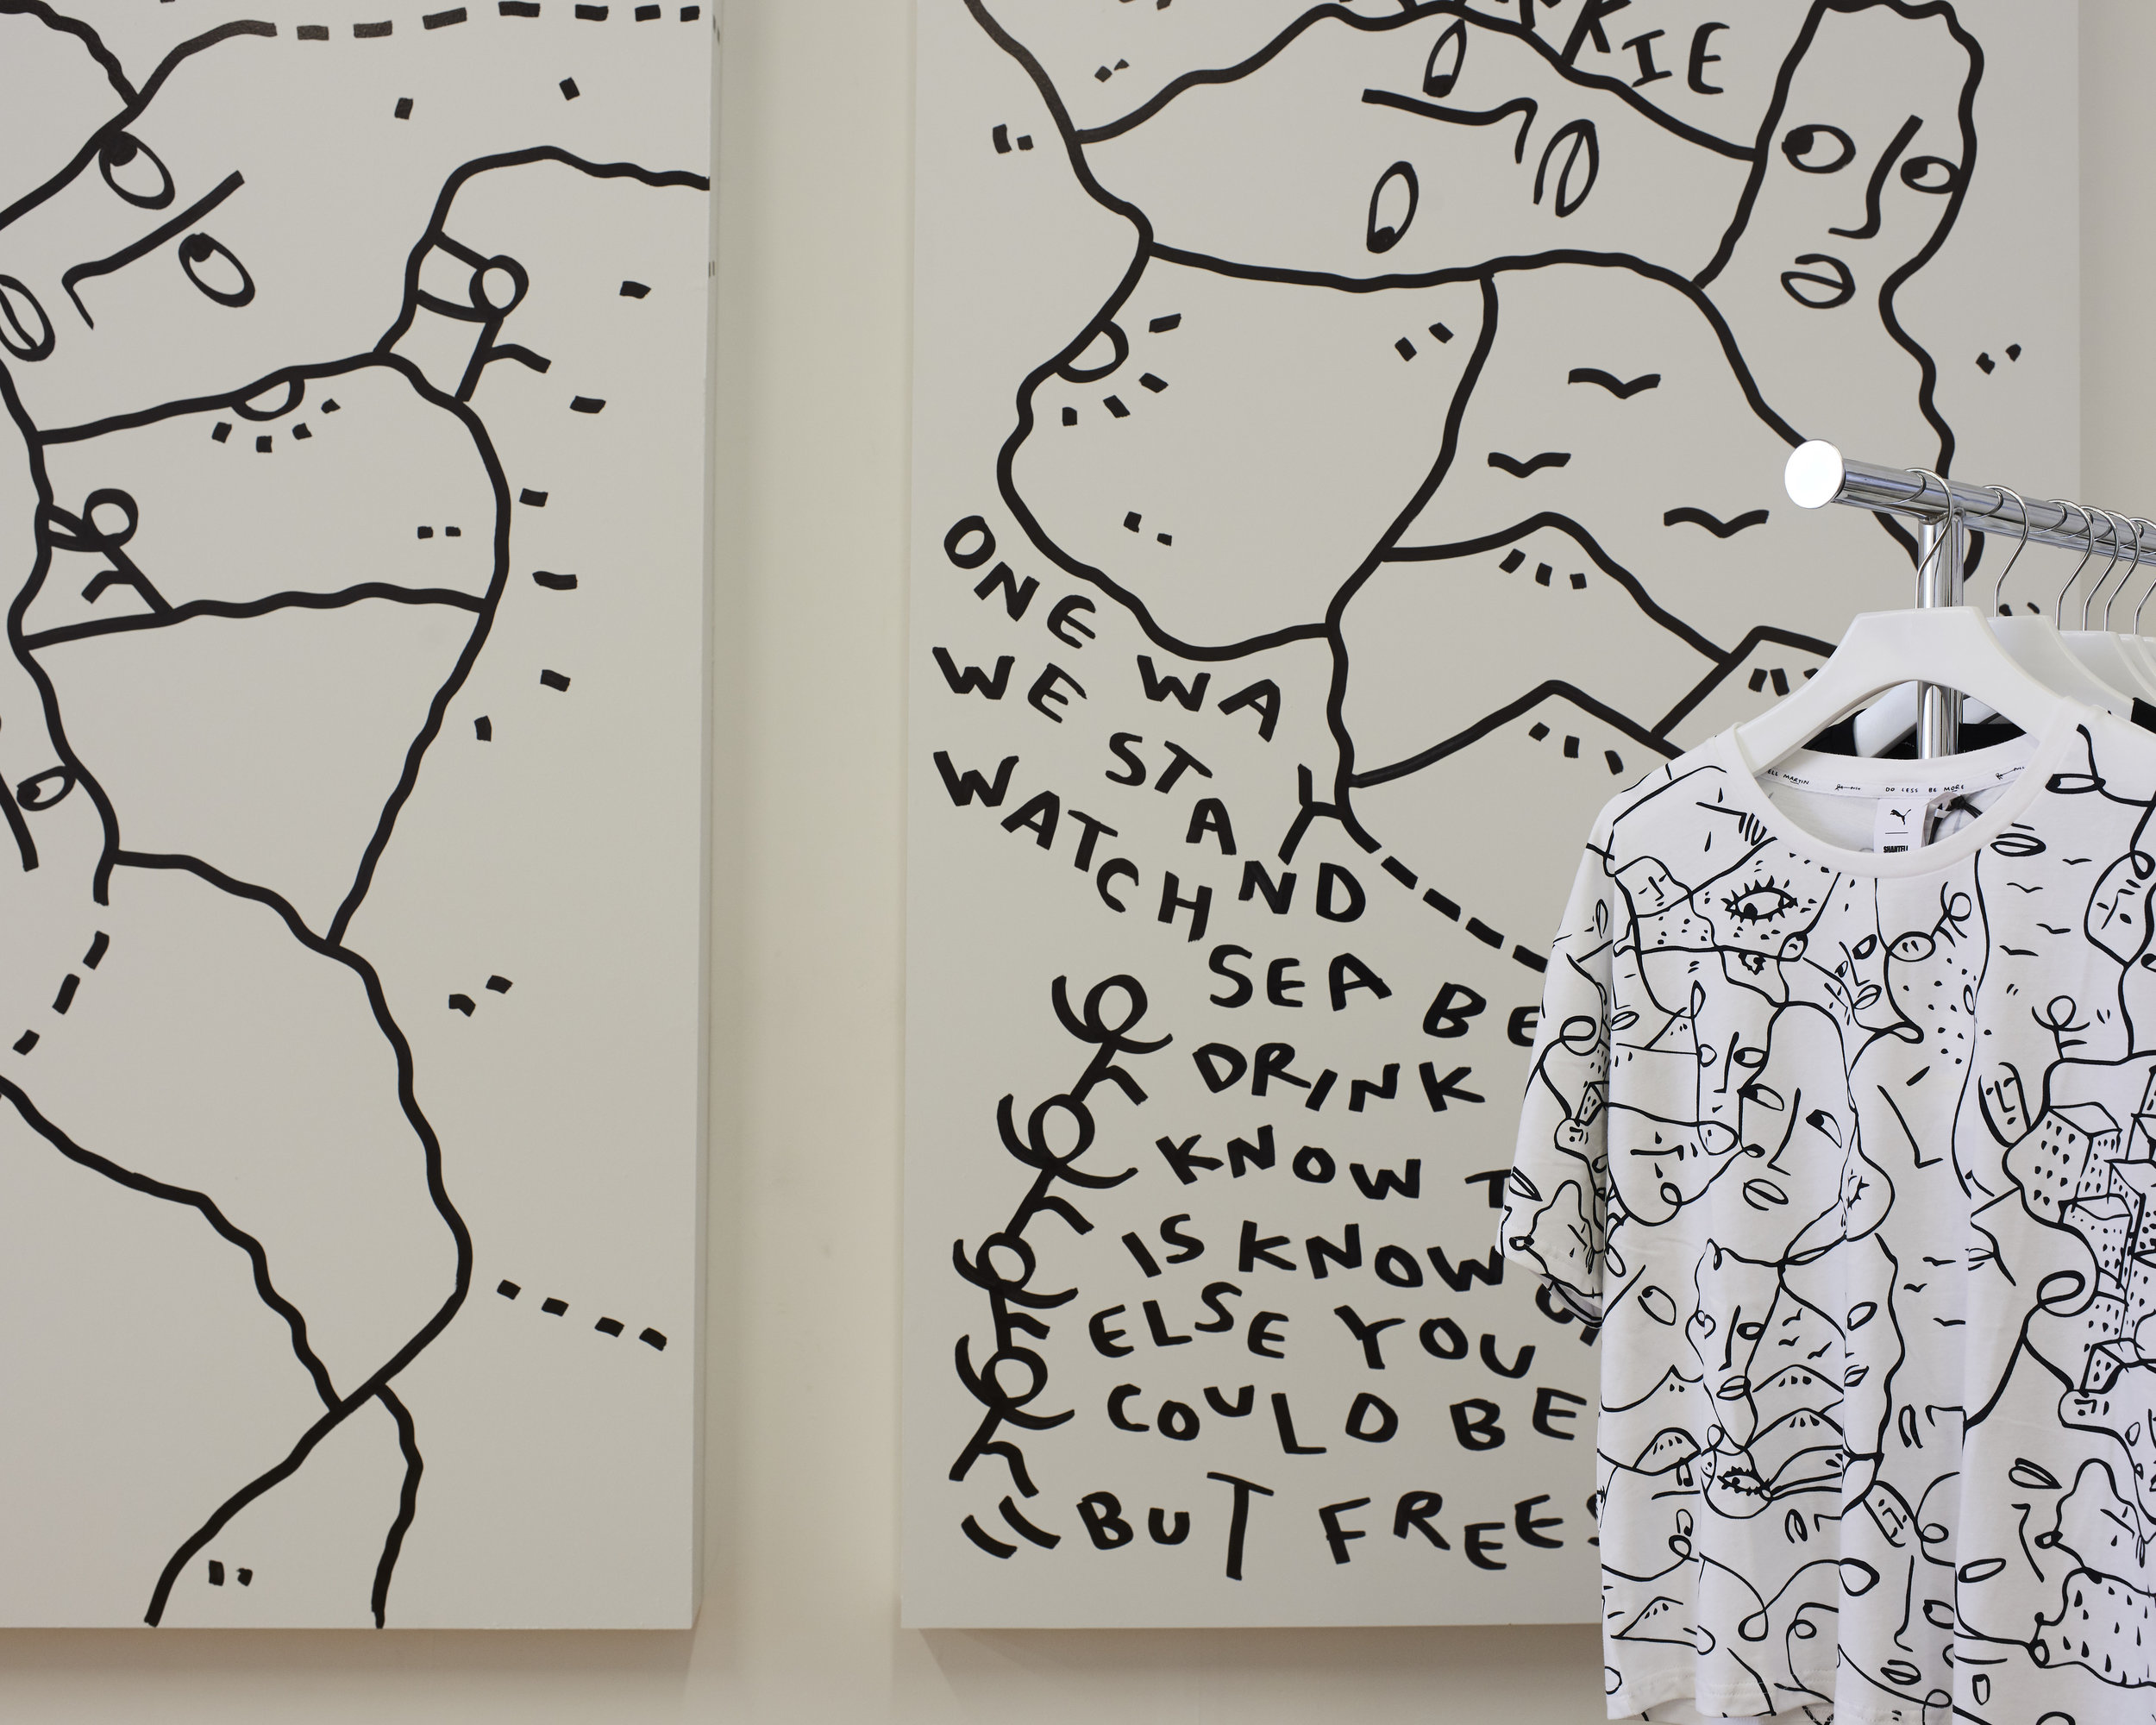 KIE
ONE WAY
WE STAND
WATCH SEA BE
DRINK
KNOW T
IS KNOW
ELSE YOU
COULD BE
BUT FREES
ELL MARTIN
DO LESS BE MORE
SHANTELL